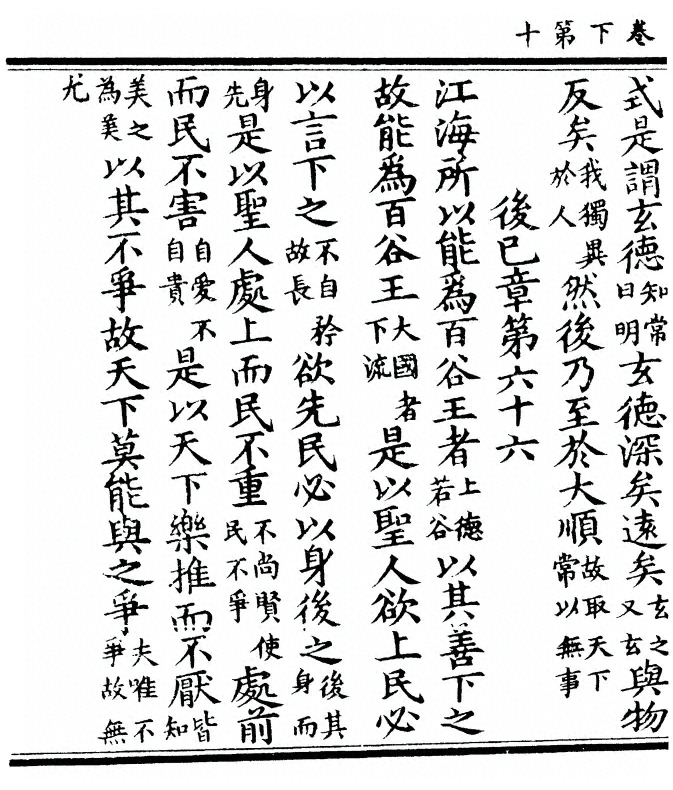 卷下第十
式是謂玄德知常曰明玄德深矣遠矣玄之又玄與物
反矣我獨異於人然後乃至於大順故取天下常以無事
後已章第六十六
江海所以能爲百谷王者上德若谷以其善下之
故能爲百谷王大國者下流是以聖人欲上民必
以言下之不自矜故長欲先民必以身後之後其身而
身先是以聖人處上而民不重不尚賢使民不爭處前
而民不害自愛不自貴是以天下樂推而不厭皆知
美之為美以其不爭故天下莫能與之爭夫唯不爭故無
尤